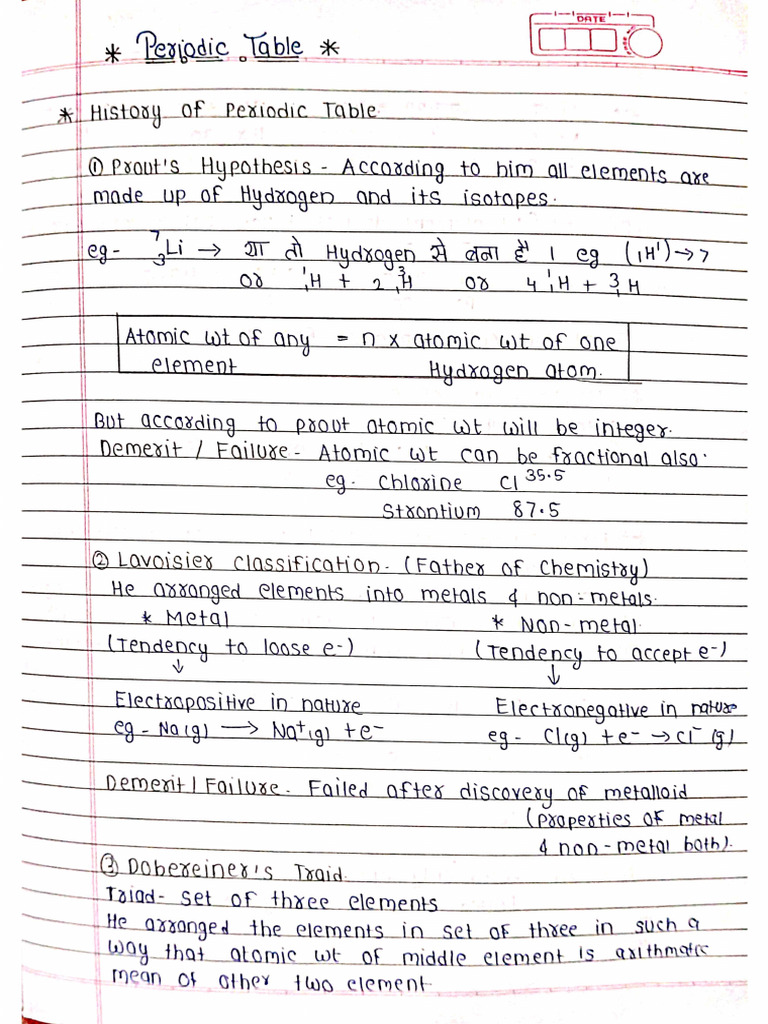 DATE
* Periodic Table *
* History of Periodic Table
① Prout's Hypothesis - According to him all elements are
made up of Hydrogen and its isotapes.
eg- ⁷₃Li → या तो Hydrogen से बना है । eg (₁H¹) → 7
or ¹₁H + 2 ³₁H or 4 ¹₁H + ³₁H
Atomic wt of any = n x atomic wt of one
element Hydrogen atom.
But according to prout atomic wt will be integer.
Demerit / Failure - Atomic wt can be fractional also.
eg. Chlorine Cl ³⁵·⁵
Strontium 87.5
② Lavoisier classification. (Father of Chemistry)
He arranged elements into metals & non-metals.
* Metal * Non-metal
(Tendency to loose e-) (Tendency to accept e-)
↓ ↓
Electropositive in nature Electronegative in nature
eg - Na(g) → Na⁺(g) + e⁻ eg - Cl(g) + e⁻ → Cl⁻(g)
Demerit / Failure - Failed after discovery of metalloid
(properties of metal
& non-metal both).
③ Dobereiner's Traid.
Triad- set of three elements
He arranged the elements in set of three in such a
way that atomic wt of middle element is arithmatic
mean of other two element